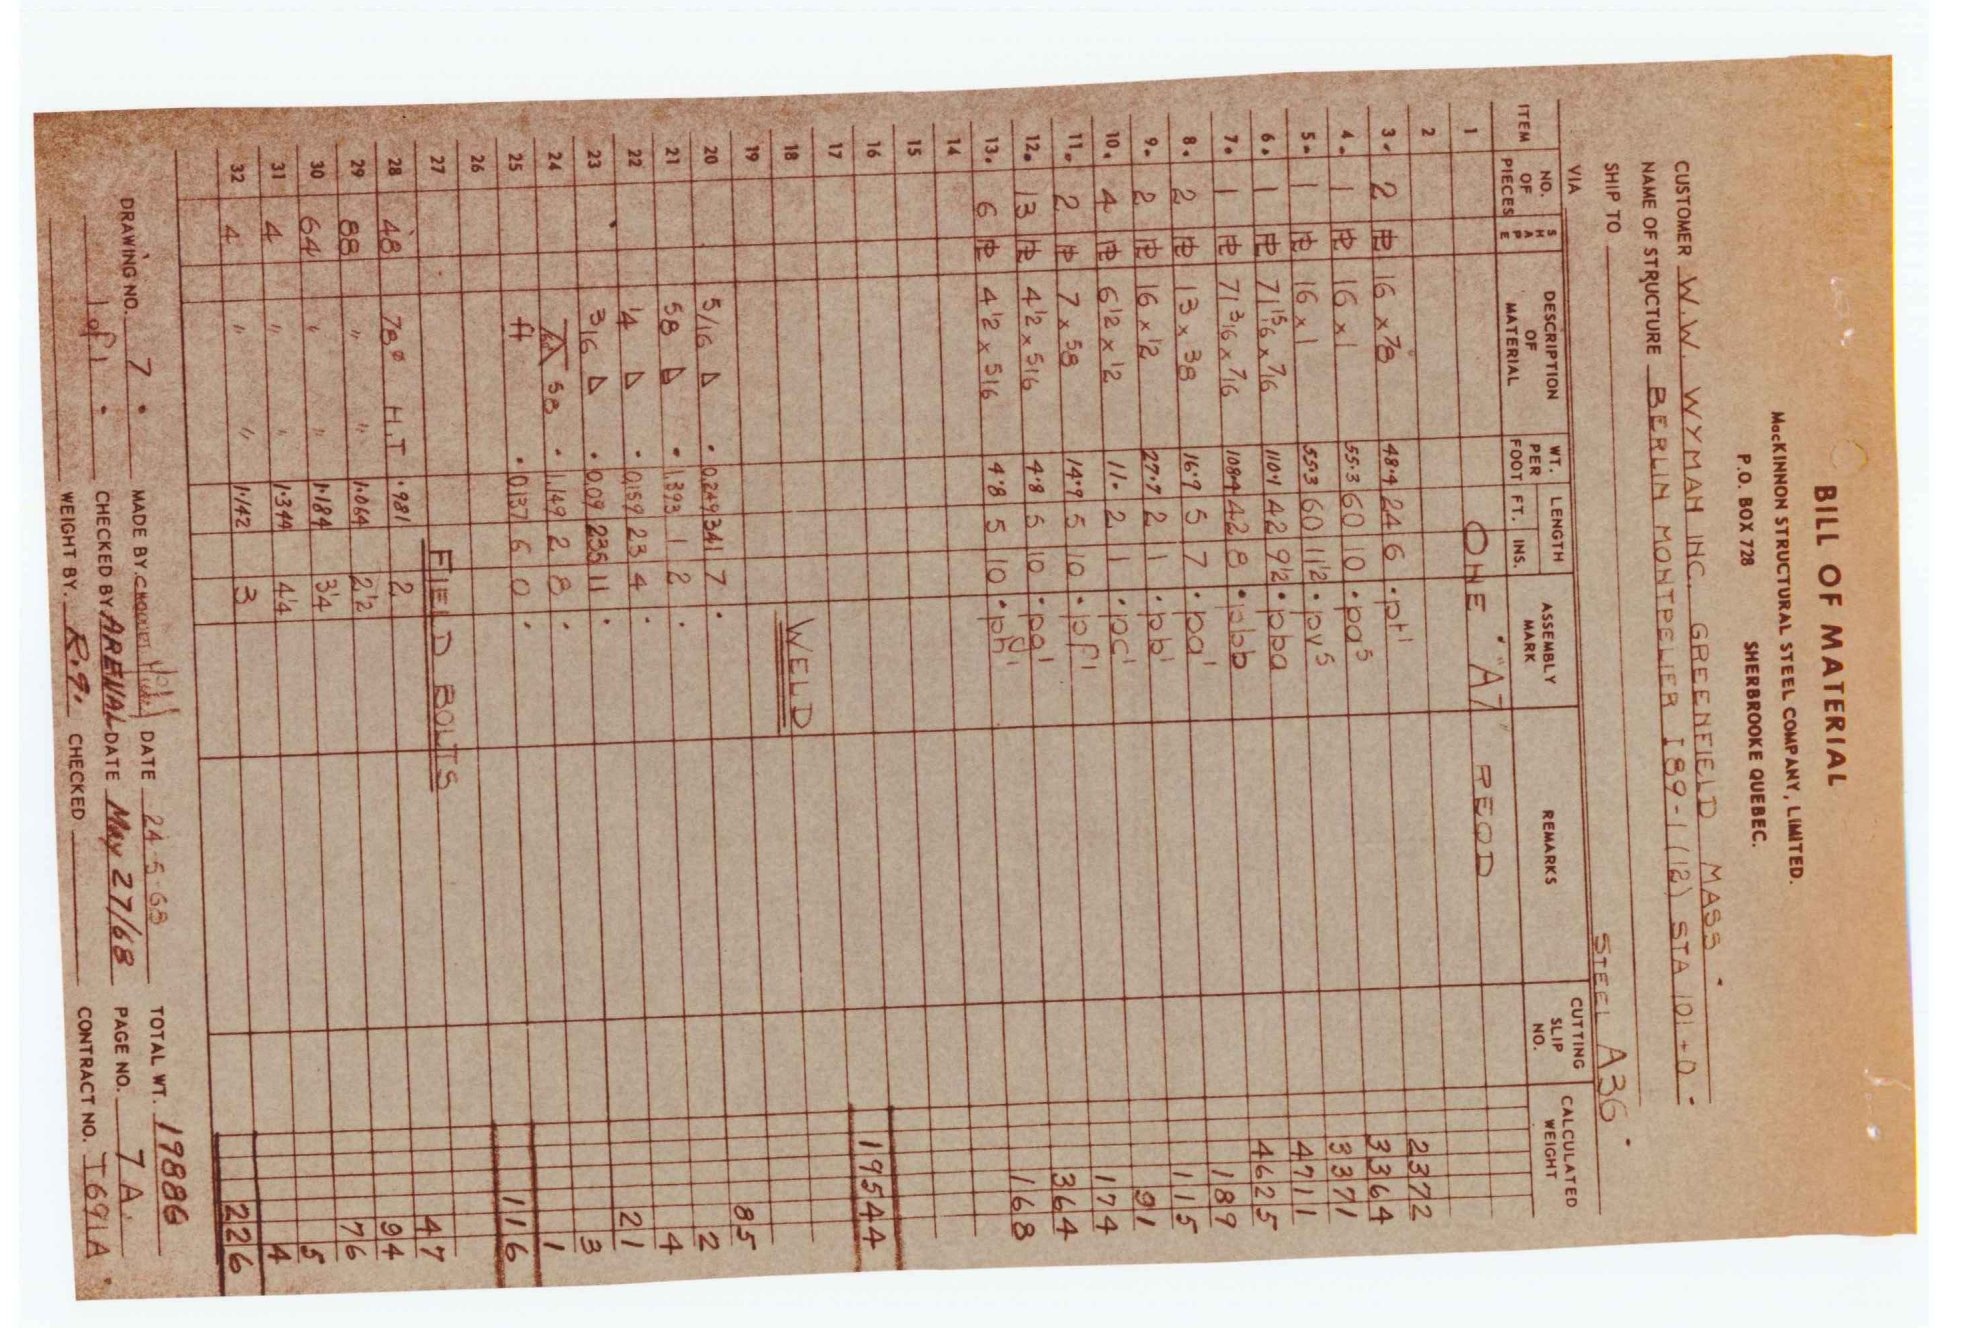 BILL OF MATERIAL
MacKINNON STRUCTURAL STEEL COMPANY, LIMITED.
P.O. BOX 728 SHERBROOKE QUEBEC.
CUSTOMER W.W. WYMAN INC. GREENFIELD MASS.
NAME OF STRUCTURE BERLIN MONTPELIER I 89-1 (12) STA 101+0.
SHIP TO
STEEL A36.
VIA
ITEM NO. OF PIECES SHAPE DESCRIPTION OF MATERIAL WT. PER FOOT LENGTH FT. INS. ASSEMBLY MARK REMARKS CUTTING SLIP NO. CALCULATED WEIGHT
1 ONE "A7" REQD
2
3. 2 PL 16 x 7/8 48.4 24 6 . pt1 2372
4. 1 PL 16 x 1 55.3 60 10 . pa5 3364
5. 1 PL 16 x 1 55.3 60 11 1/2 . py5 3371
6. 1 PL 71 5/16 x 7/16 110.4 42 9 1/2 . pba 4711
7. 1 PL 71 3/16 x 7/16 108.4 42 8 . pbb 4625
8. 2 PL 13 x 3/8 16.9 5 7 . pa1 189
9. 2 PL 16 x 1/2 27.7 2 1 . pb1 115
10. 4 PL 6 1/2 x 1/2 11. 2 1 . pc1 91
11. 2 PL 7 x 5/8 14.9 5 10 . pf1 174
12. 13 PL 4 1/2 x 5/16 4.8 5 10 . pg1 364
13. 6 PL 4 1/2 x 5/16 4.8 5 10 . ph1 168
14
15
16
17 19544
18 WELD
19
20 5/16 △ . 0.249 341 7 . 85
21 5/8 △ . 1.393 1 2 . 2
22 1/4 △ . 0.159 23 4 . 4
23 3/16 △ . 0.09 235 11 . 21
24 5/8 . 1.149 2 8 . 3
25 ft . 0.137 6 0 . 1
26 116
27 FIELD BOLTS
28 48 7/8ø H.T .981 2 47
29 88 " " 1.064 2 1/2 94
30 64 " " 1.184 3 1/4 76
31 4 " " 1.344 4 1/4 5
32 4 " " 1.142 3 4
226
DRAWING NO. 7. MADE BY DATE 24.5.68 TOTAL WT. 19886
1 of 1. CHECKED BY ARENAL DATE May 27/68 PAGE NO. 7A.
WEIGHT BY. R.G. CHECKED CONTRACT NO. I 691A.